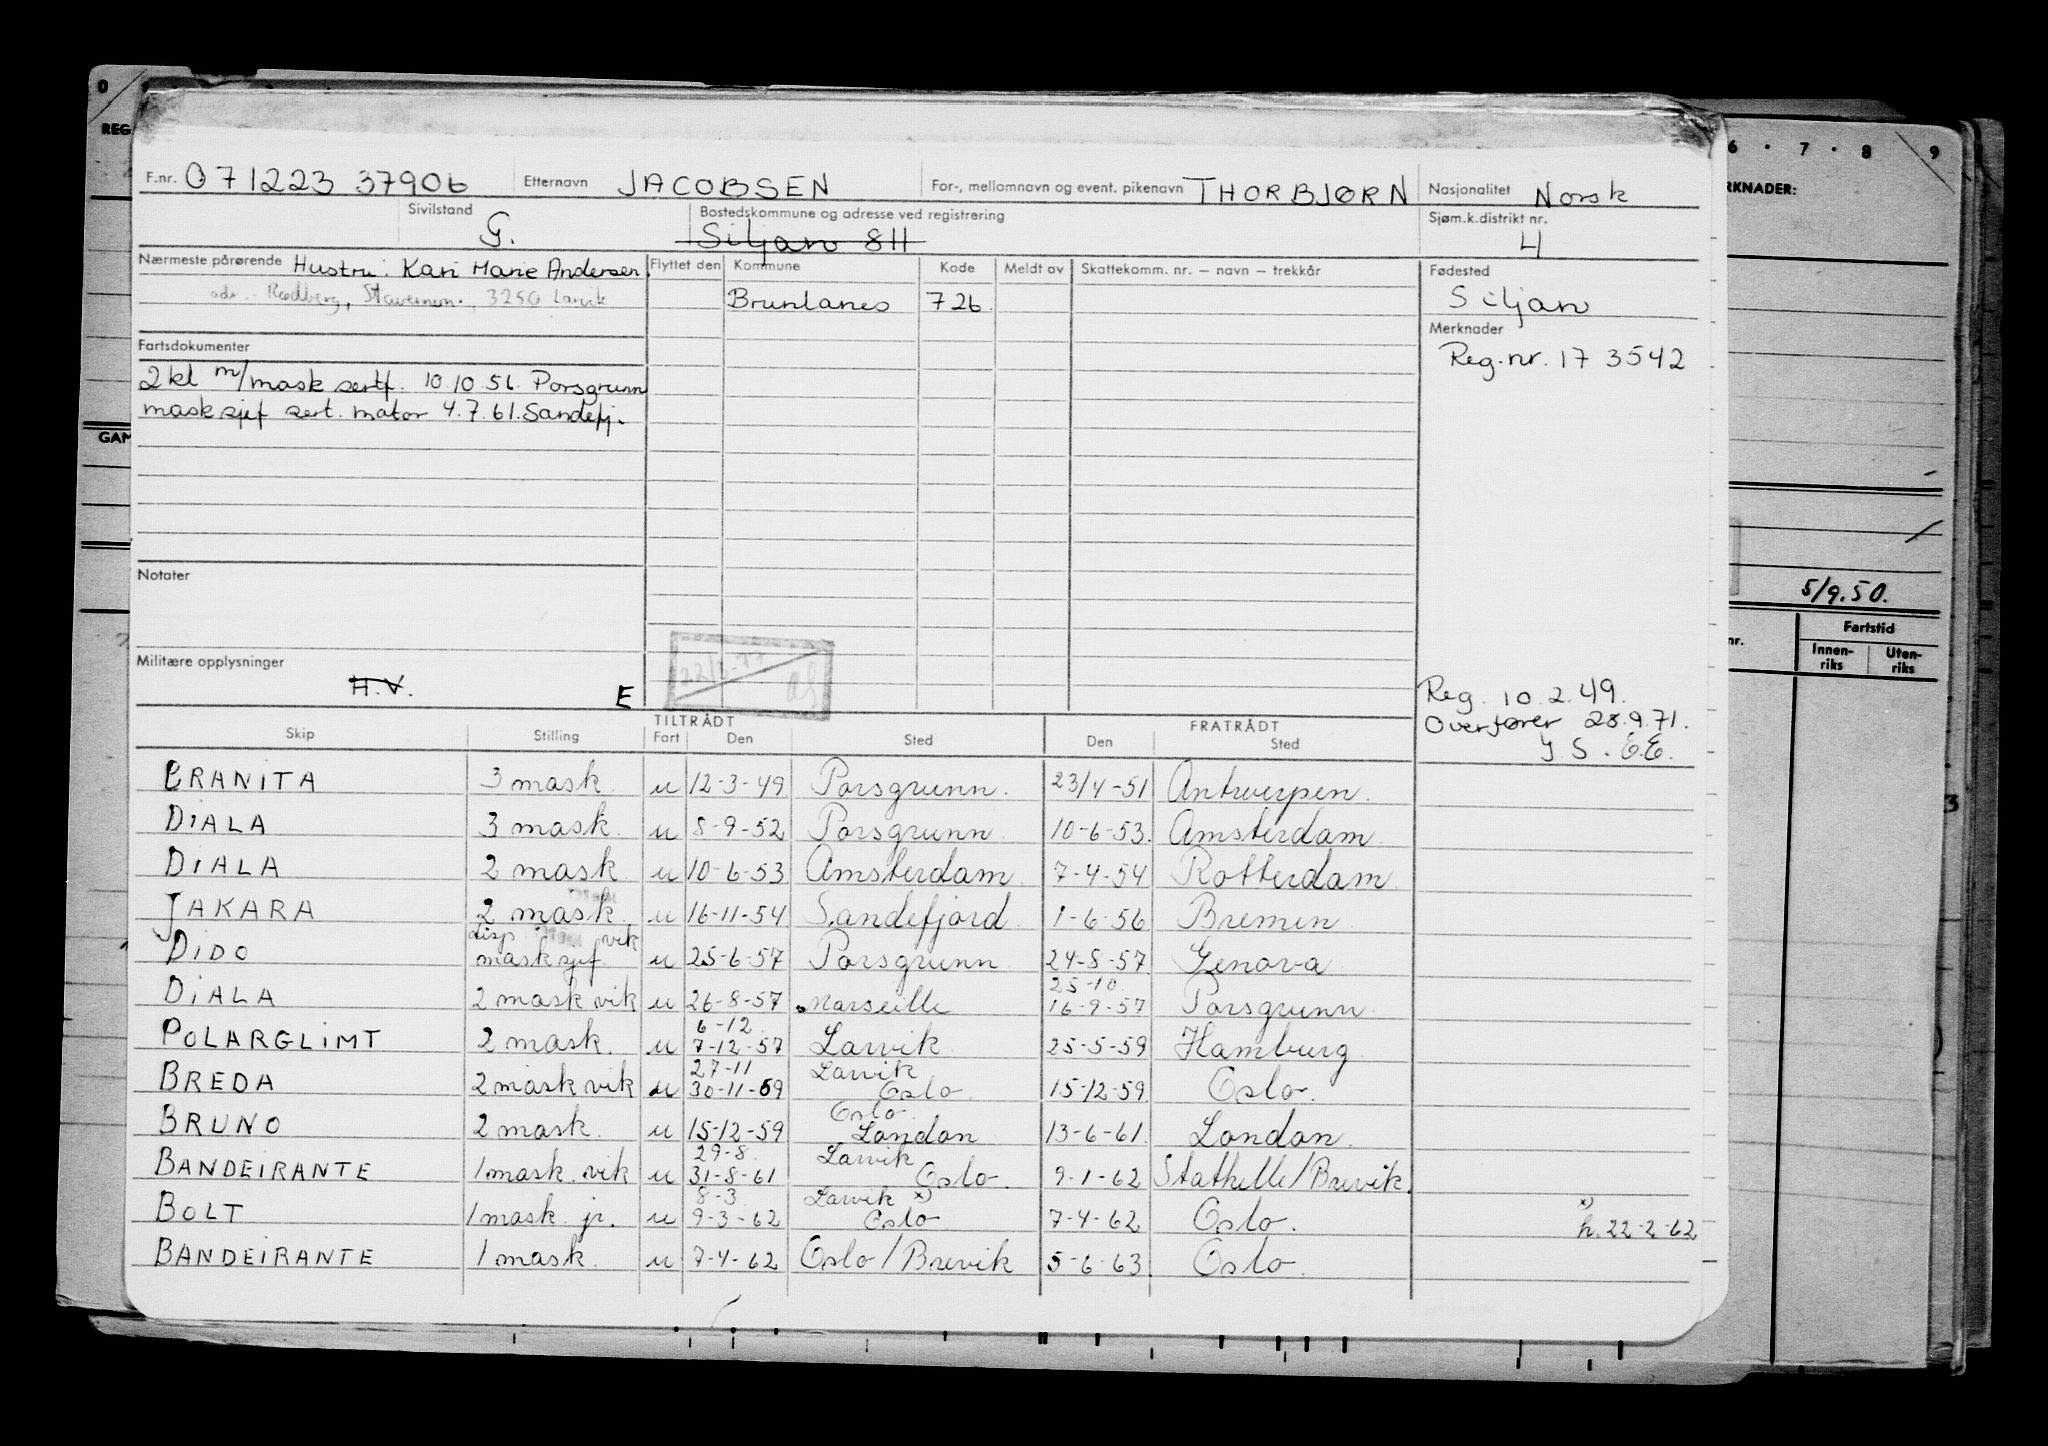 F.nr. 071223 37906 Etternavn JACOBSEN For-, mellomnavn og event. pikenavn THORBJØRN Nasjonalitet Norsk
Sivilstand G. Bostedskommune og adresse ved registrering Siljan 811 Sjøm.k.distrikt nr. 4
Nærmeste pårørende Hustru: Kari Marie Andersen Flyttet den Kommune Kode Meldt av Skattekomm. nr. – navn – trekkår Fødested
adr. Rødberg, Stavernen, 3250 Larvik Brunlanes 726. Siljan
Merknader
Fartsdokumenter Reg.nr. 17 3542
2 kl m/mask sertf. 10.10.56. Porsgrunn
mask sjef sert. motor 4.7.61. Sandefj.
Notater
Militære opplysninger
H.V. E
22/3-77
Reg. 10.2.49.
Overfører 28.9.71.
Y.S. E.E.
TILTRÅDT FRATRÅDT
Skip Stilling Fart Den Sted Den Sted
BRANITA 3 mask. u 12-3-49 Porsgrunn. 23/4-51 Antwerpen.
DIALA 3 mask. u 8-9-52 Porsgrunn 10-6-53. Amsterdam
DIALA 2 mask u 10-6-53 Amsterdam 7-4-54 Rotterdam
JAKARA 2 mask. u 16-11-54 Sandefjord 1-6-56 Bremen
disp vik
DIDO mask sjef. u 25-6-57 Porsgrunn 24-8-57 Genova
25-10
DIALA 2 mask vik u 26-8-57 Marseille 16-9-57 Porsgrunn
6-12
POLARGLIMT 2 mask. u 7-12-57 Larvik 25-5-59 Hamburg
27-11 Larvik
BREDA 2 mask vik u 30-11-59 Oslo. 15-12-59 Oslo.
Oslo.
BRUNO 2 mask. u 15-12-59 London 13-6-61. London.
29-8. Larvik
BANDEIRANTE 1 mask. vik u 31-8-61 Oslo. 9-1-62 Stathelle/Brevik.
8-3. Larvik x)
BOLT 1 mask jr. u 9-3-62 Oslo 7-4-62 Oslo. x) h. 22-2-62
BANDEIRANTE 1 mask. u 7-4-62 Oslo / Brevik 5-6-63. Oslo.
0
REG
GAM
6 · 7 · 8 9
RKNADER:
5/9.50.
nr. Fartstid
Innenriks Utenriks
3